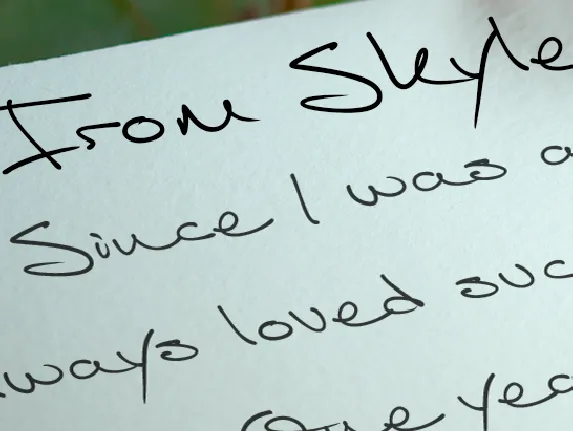 From Skyle
Since I was a
ways loved suc
One yea